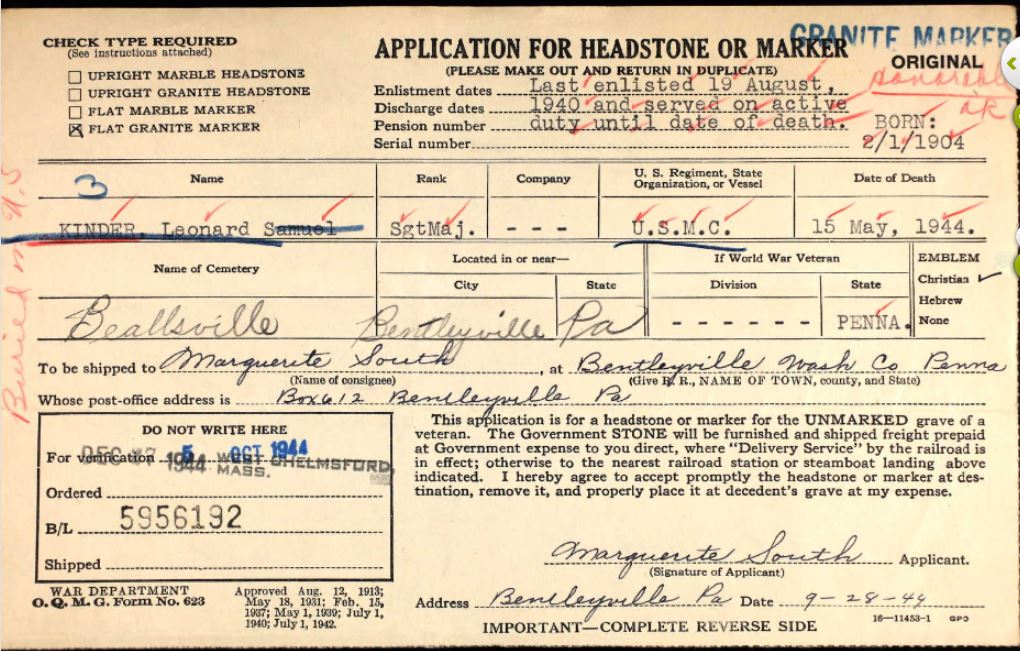 GRANITE MARKER
CHECK TYPE REQUIRED
(See instructions attached)
UPRIGHT MARBLE HEADSTONE
UPRIGHT GRANITE HEADSTONE
FLAT MARBLE MARKER
FLAT GRANITE MARKER
APPLICATION FOR HEADSTONE OR MARKER
(PLEASE MAKE OUT AND RETURN IN DUPLICATE)
ORIGINAL
Enlistment dates Last enlisted 19 August,
Discharge dates 1940 and served on active
Pension number duty until date of death.
Serial number
BORN:
2/1/1904
3
Name Rank Company U. S. Regiment, State Organization, or Vessel Date of Death
KINDER, Leonard Samuel SgtMaj. - - - U.S.M.C. 15 May, 1944.
Name of Cemetery Located in or near— If World War Veteran EMBLEM
City State Division State Christian
Hebrew
None
Beallsville Bentleyville Pa - - - - - - PENNA.
To be shipped to Marguerite South, at Bentleyville Wash Co Penna
(Name of consignee) (Give R. R., NAME OF TOWN, county, and State)
Whose post-office address is Box 612 Bentleyville Pa
DO NOT WRITE HERE
For verification 5 OCT 1944
DEC 1944 WEST CHELMSFORD, MASS.
Ordered
B/L 5956192
Shipped
This application is for a headstone or marker for the UNMARKED grave of a
veteran. The Government STONE will be furnished and shipped freight prepaid
at Government expense to you direct, where "Delivery Service" by the railroad is
in effect; otherwise to the nearest railroad station or steamboat landing above
indicated. I hereby agree to accept promptly the headstone or marker at des-
tination, remove it, and properly place it at decedent's grave at my expense.
Marguerite South Applicant.
(Signature of Applicant)
Address Bentleyville Pa Date 9-28-44
WAR DEPARTMENT
O. Q. M. G. Form No. 623
Approved Aug. 12, 1913;
May 18, 1931; Feb. 15,
1937; May 1, 1939; July 1,
1940; July 1, 1942.
IMPORTANT—COMPLETE REVERSE SIDE
16—11453-1 GPO
Buried in U.S